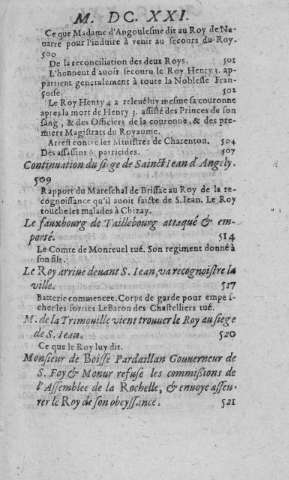 M. DC. XXI.
Ce que Madame d'Angoulesme dit au Roy de Na-
uarre pour l'induire à venir au secours du Roy.
500
De la reconciliation des deux Roys. 501
L'honneur d'auoir secouru le Roy Henry 3. ap-
partient generalement à toute la Noblesse Fran-
çoise. 502
Le Roy Henry 4 a releué luy mesme sa couronne
apres la mort de Henry 3. assisté des Princes de son
sang, & des Officiers de la couronne, & des pre-
miers Magistrats du Royaume.
Arrest contre les Ministres de Charenton. 504
Des assassins & parricides. 507
Continuation du siege de Sainct Iean d'Angely.
509
Rapport du Mareschal de Brissac au Roy de la re-
cognoissance qu'il auoit faicte de S. Iean. Le Roy
touche les malades à Chizay.
Le fauxbourg de Taillebourg attaqué & em-
porté. 514
Le Comte de Montreuel tué. Son regiment donné à
son fils.
Le Roy arriue deuant S. Iean, va recognoistre la
ville. 517
Batterie commencee. Corps de garde pour empes-
cher les sorties Le Baron des Chastelliers tué.
M. de la Trimouille vient trouuer le Roy au siege
de S. Iean. 520
Ce que le Roy luy dit.
Monsieur de Boisse Pardaillan Gouuerneur de
S. Foy & Monur refuse les commissions de
l'Assemblee de la Rochelle, & enuoye asseu-
rer le Roy de son obeyssance. 521